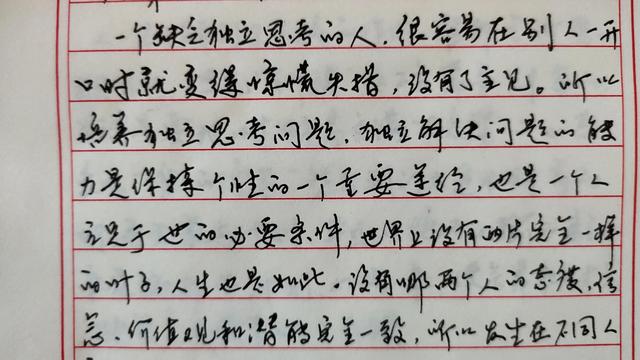 一个缺乏独立思考的人，很容易在别人一开
口时就变得惊慌失措，没有了主见。所以
培养独立思考问题、独立解决问题的能
力是保持个性的一个重要途径，也是一个人
立足于世的必要条件，世界上没有两片完全一样
的叶子，人生也是如此。没有哪两个人的态度、信
念、价值观和潜能完全一致，所以发生在不同人